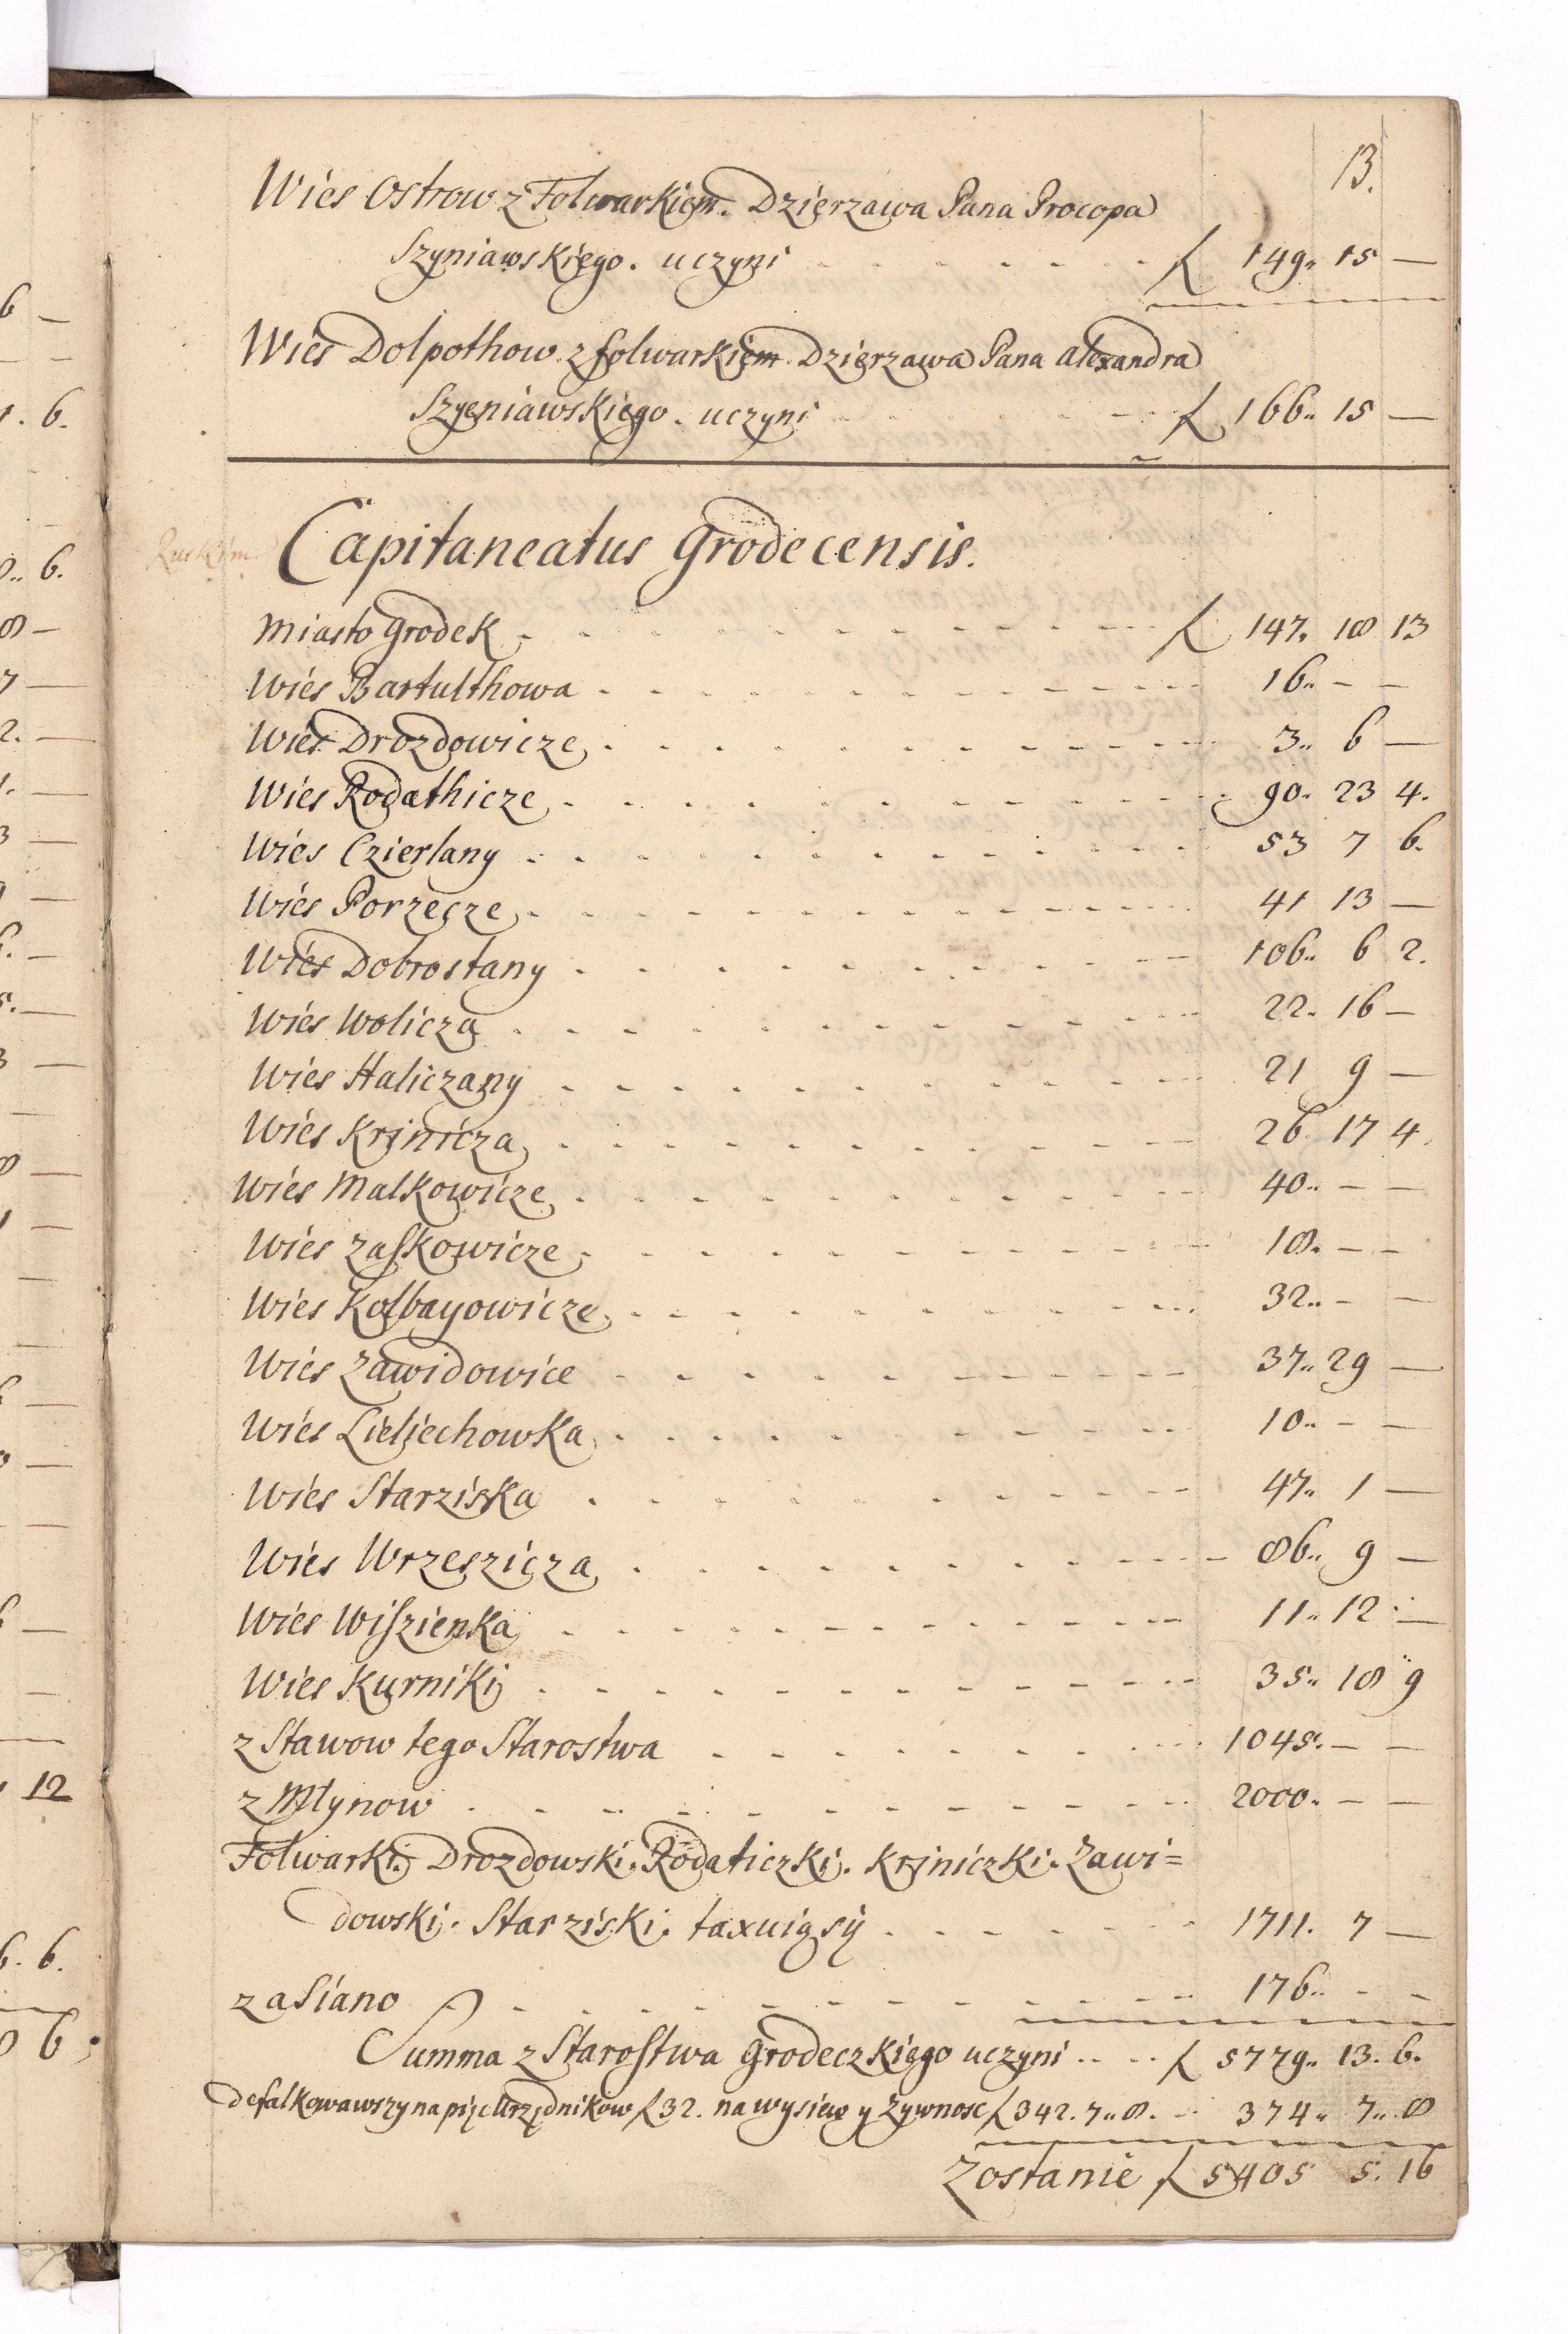 13.
Wies Ostrow z Folwarkiem. Dzierzawa Pana Procopa
Szyniawskiego. uczyni - - - - - - - ƚ 149,, 15 —
Wies Dolpothow z folwarkiem Dzierzawa Pana Alexandra
Szyeniawskiego. uczyni - - - - - - - ƚ 166,, 15 —
Capitaneatus Grodecensis.
Ruskim
Miasto Grodek - - - - - - - ƚ 147. 18 13
Wies Bartulthowa - - - - - - - 16,, - -
Wies Drozdowicze - - - - - - - 3,, 6 —
Wies Rodathicze - - - - - - - 90. 23 4.
Wies Czierlany - - - - - - - 53 7 6.
Wies Porzecze - - - - - - - 41 13 —
Wies Dobrostany - - - - - - - 106,, 6 2.
Wies Wolicza - - - - - - - 22. 16 —
Wies Haliczany - - - - - - - 21 9 —
Wies Krjnicza - - - - - - - 26 17 4.
Wies Malkowicze - - - - - - - 40,, - -
Wies Zaſkowicze - - - - - - - 18. - -
Wies Koſbayowicze - - - - - - - 32,, - -
Wies Zawidowice - - - - - - - 37,, 29 —
Wies Lieljechowka - - - - - - - 10,, - -
Wies Starziska - - - - - - - 47,, 1 —
Wies Wrzeszicza - - - - - - - 86,, 9 —
Wies Wiſzienka - - - - - - - 11,, 12 —
Wies Kurnikj - - - - - - - 35,, 18 9
z Stawow tego Starostwa - - - - - - - 1045. - -
z Młynow - - - - - - - 2000. - -
Folwarki. Drozdowski. Rodaticzki. Krjniczki. Zawi=
dowski. Starziski. taxuiąsÿ - - - - - - 1711. 7 —
za Siano - - - - - - - 176,, - -
Summa z Staroſtwa Grodeczkiego uczyni .. .. ƚ 5779,, 13. 6.
Defalkowawszy na pięc Urzędnikow ƚ 32. na wysiew y Zywnosc ƚ 342. 7,, 8. - 374,, 7,, 8
Zostanie ƚ 5405 5. 16
6 —
1. 6.
6.
8 —
7 —
2. —
3 —
5. —
3 —
8 —
1 —
12
6. 6.
6